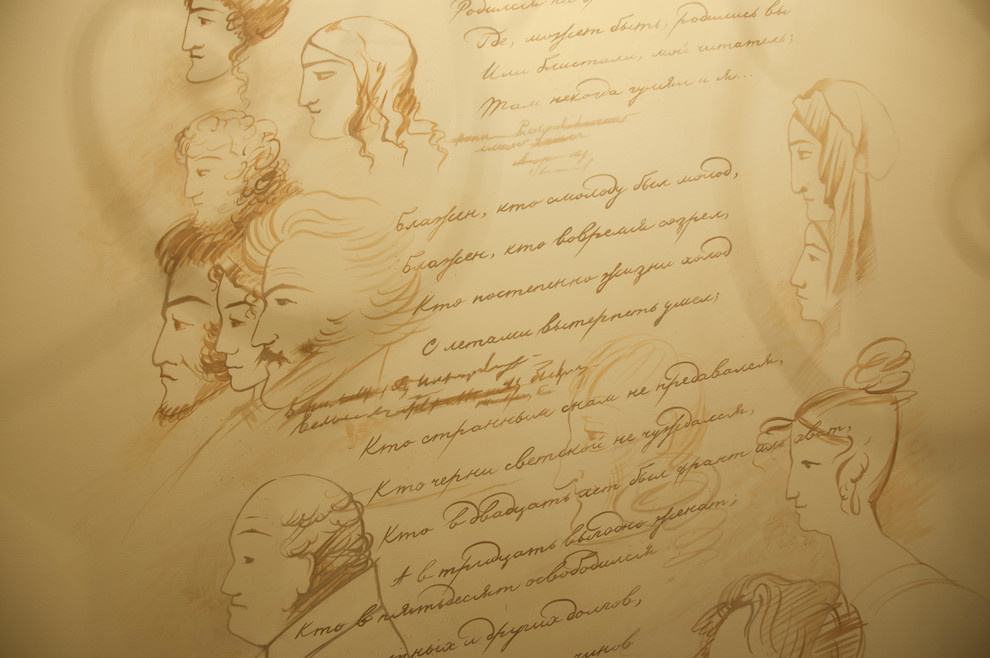 Родился на
Где, может быть, родились вы
Или блистали, мой читатель;
Там некогда гулял и я...
Блажен, кто смолоду был молод,
Блажен, кто вовремя созрел,
Кто постепенно жизни холод
С летами вытерпеть умел;
Кто странным снам не предавался,
Кто черни светской не чуждался,
Кто в двадцать лет был франт иль хват,
А в тридцать выгодно женат;
Кто в пятьдесят освободился
тных и других долгов,
чинов